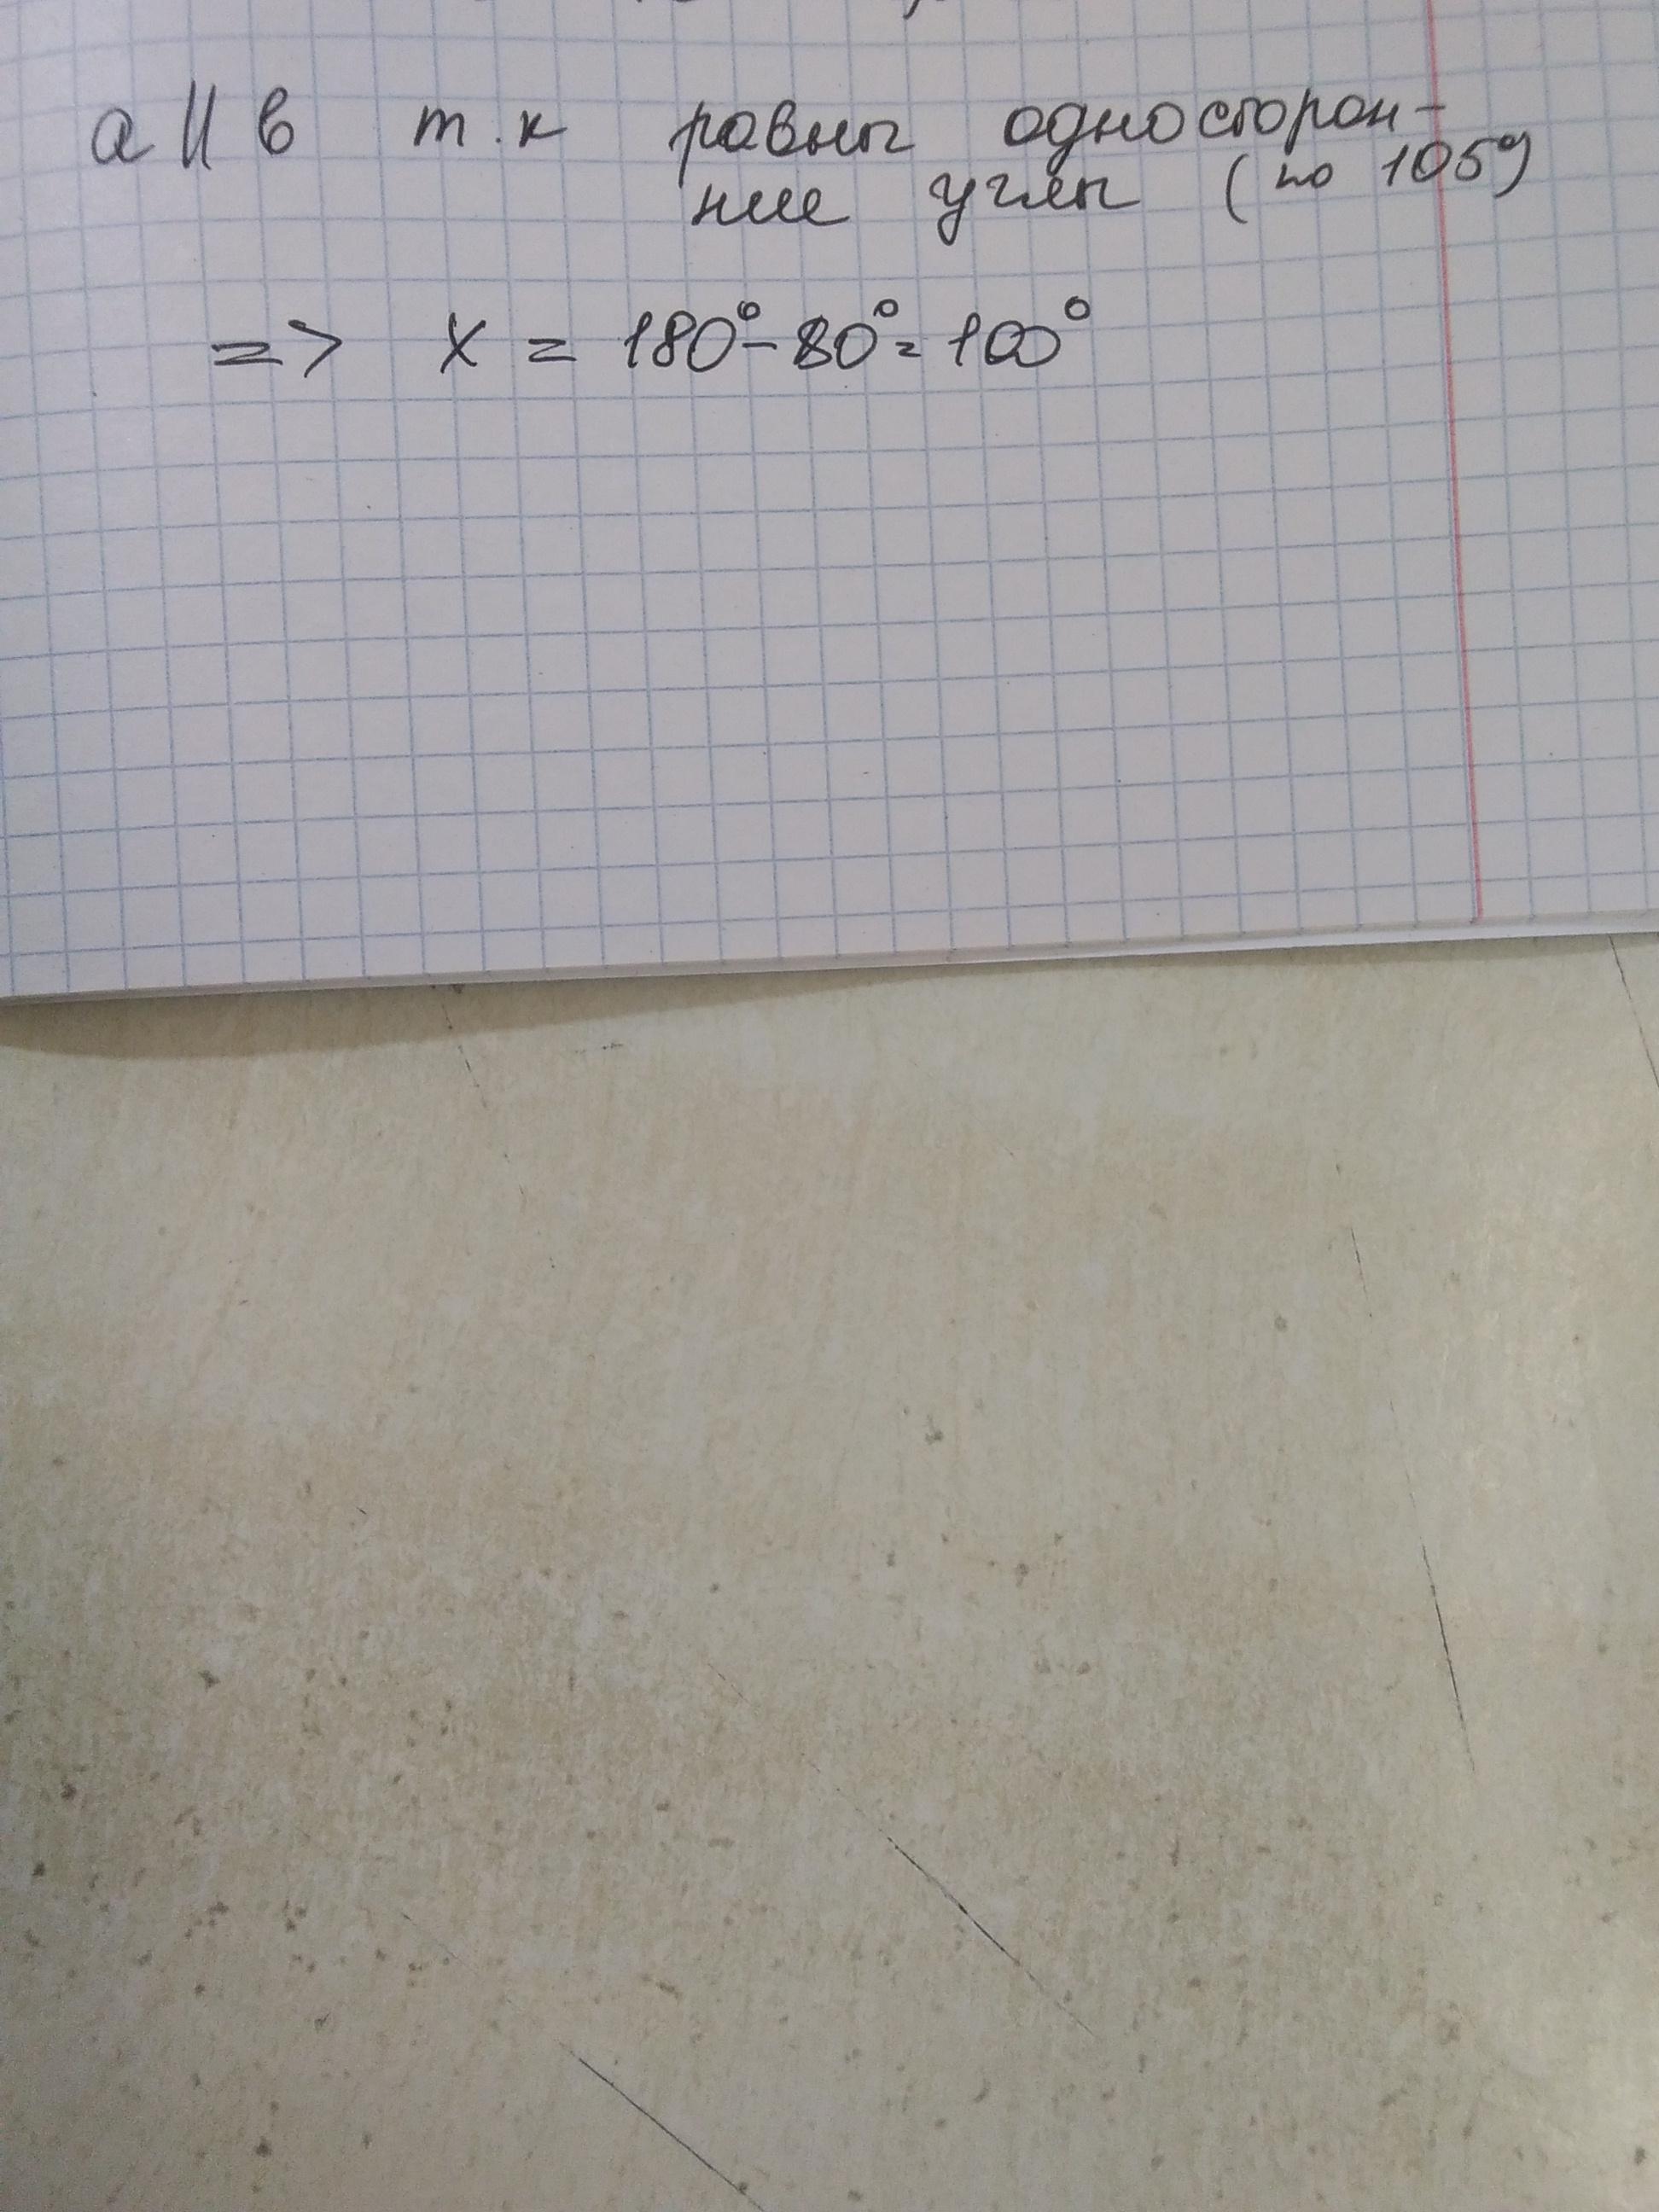 a || в т.к равны односторон-
ние углы (по 105°)
=> x = 180° - 80° = 100°